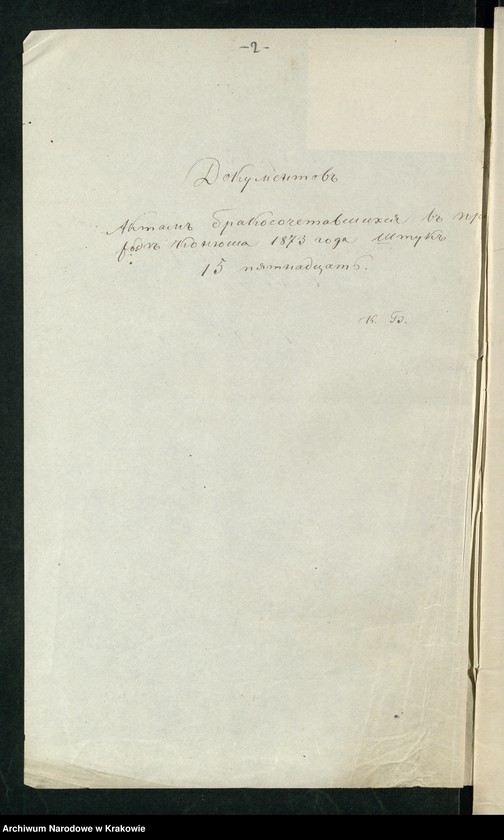 -2-
Документовъ
Актамъ бракосочетавшихся въ пр
Ксіонжа 1873 года Штукъ
15 пятнадцать.
К. Б.
Archiwum Narodowe w Krakowie